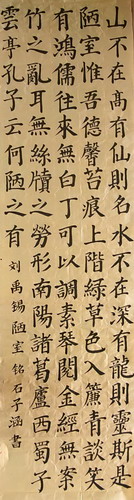 山不在高有仙則名水不在深有龍則靈斯是
陋室惟吾德馨苔痕上階綠草色入簾青談笑
有鴻儒往來無白丁可以調素琴閱金經無案
竹之亂耳無絲牘之勞形南陽諸葛廬西蜀子
雲亭孔子云何陋之有 刘禹錫陋室銘石子涵書